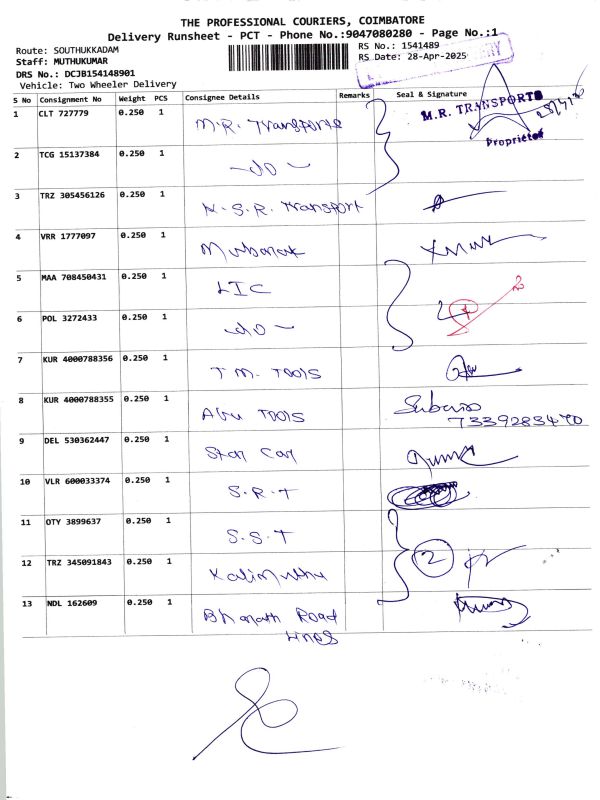 THE PROFESSIONAL COURIERS, COIMBATORE
Delivery Runsheet - PCT - Phone No.:9047080280 - Page No.:1
Route: SOUTHUKKADAM
RS No.: 1541489
Staff: MUTHUKUMAR
RS Date: 28-Apr-2025
DRS No.: DCJB154148901
Vehicle: Two Wheeler Delivery
S No Consignment No Weight PCS Consignee Details Remarks Seal & Signature
1 CLT 727779 0.250 1 M.R. Transports M.R. TRANSPORTS
Proprietor
2 TCG 15137384 0.250 1 -do-
3 TRZ 305456126 0.250 1 K.S.R. Transport
4 VRR 1777097 0.250 1 Mubarak
5 MAA 708450431 0.250 1 LIC
6 POL 3272433 0.250 1 -do-
7 KUR 4000788356 0.250 1 T.M. TOOLS
8 KUR 4000788355 0.250 1 Abu TOOLS
7339283470
9 DEL 530362447 0.250 1 Star Car
10 VLR 600033374 0.250 1 S.R.T
11 OTY 3899637 0.250 1 S.S.T
12 TRZ 345091843 0.250 1 Kalimuthu 2
13 NDL 162609 0.250 1 Bharath Road
Lines